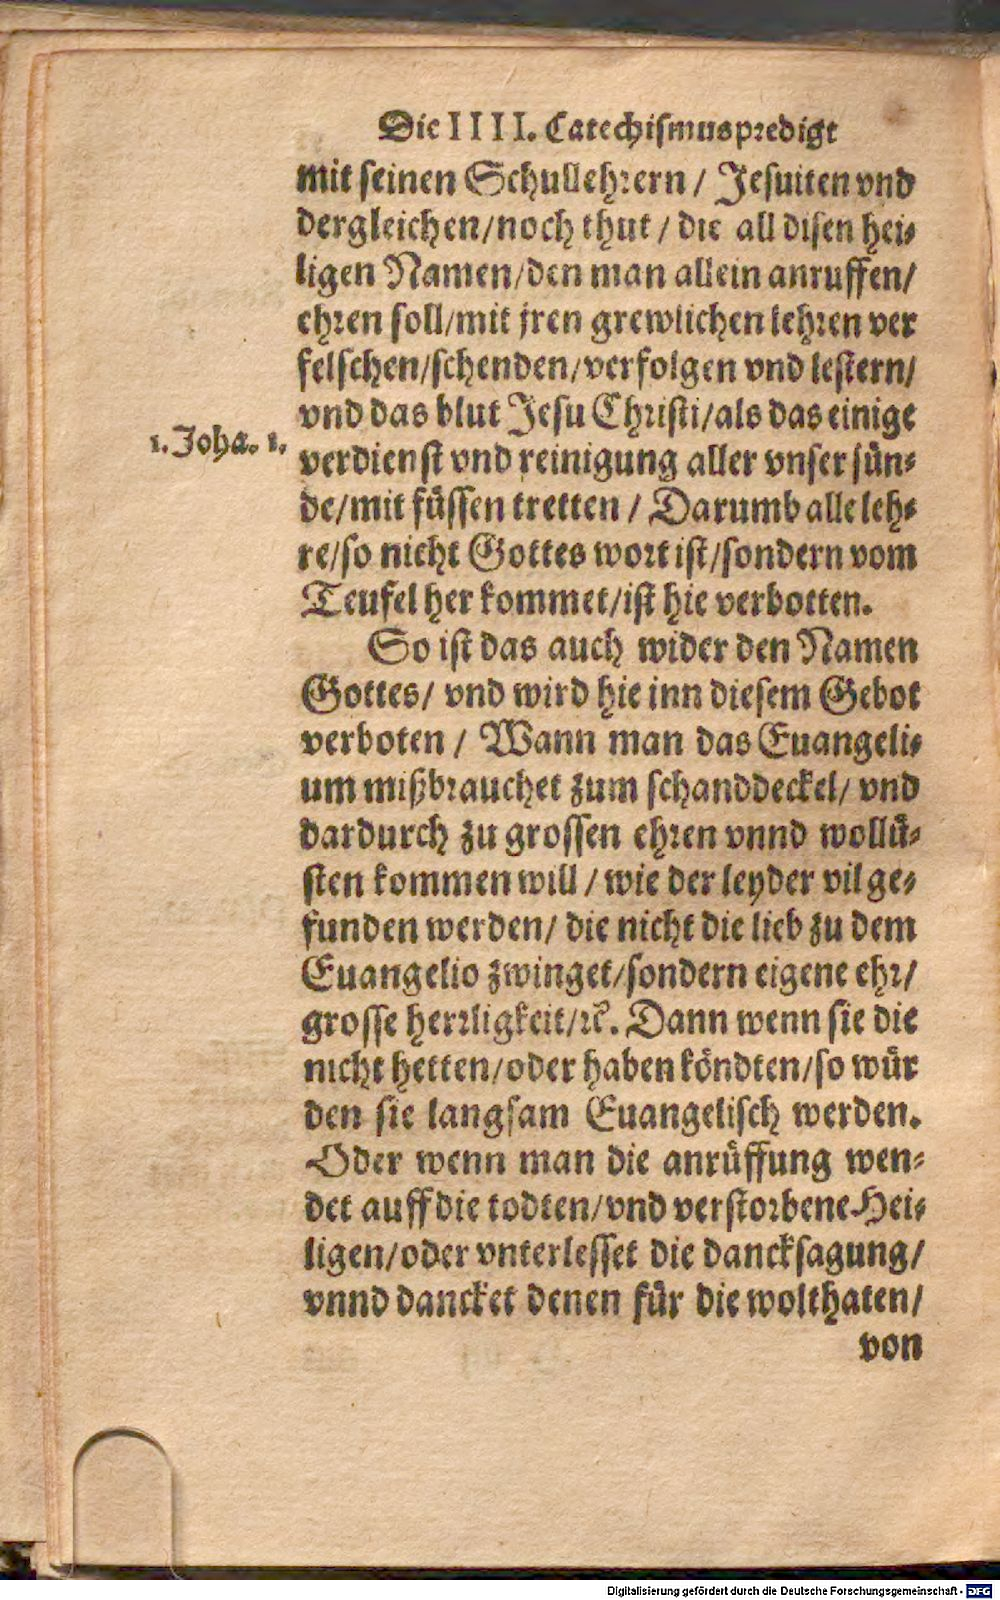 Die IIII. Catechismuspredigt
mit seinen Schullehrern / Jesuiten vnd
dergleichen/noch thut / die all disen hei-
ligen Namen/den man allein anruffen/
ehren soll/mit jren grewlichen lehren ver
felschen/schenden/verfolgen vnd lestern/
vnd das blut Jesu Christi/als das einige
1. Joha. 1.
verdienst vnd reinigung aller vnser sün-
de/mit füssen tretten / Darumb alle leh-
re/so nicht Gottes wort ist/sondern vom
Teufel her kommet/ist hie verbotten.
So ist das auch wider den Namen
Gottes/ vnd wird hie inn diesem Gebot
verboten / Wann man das Euangeli-
um mißbrauchet zum schanddeckel/ vnd
dardurch zu grossen ehren vnnd wollü-
sten kommen will / wie der leyder vil ge-
funden werden/ die nicht die lieb zu dem
Euangelio zwinget/sondern eigene ehr/
grosse herrligkeit/ꝛc. Dann wenn sie die
nicht hetten/oder haben köndten/so wür
den sie langsam Euangelisch werden.
Oder wenn man die anrüffung wen-
det auff die todten/vnd verstorbene Hei-
ligen/oder vnterlesset die dancksagung/
vnnd dancket denen für die wolthaten/
von
Digitalisierung gefördert durch die Deutsche Forschungsgemeinschaft - DFG